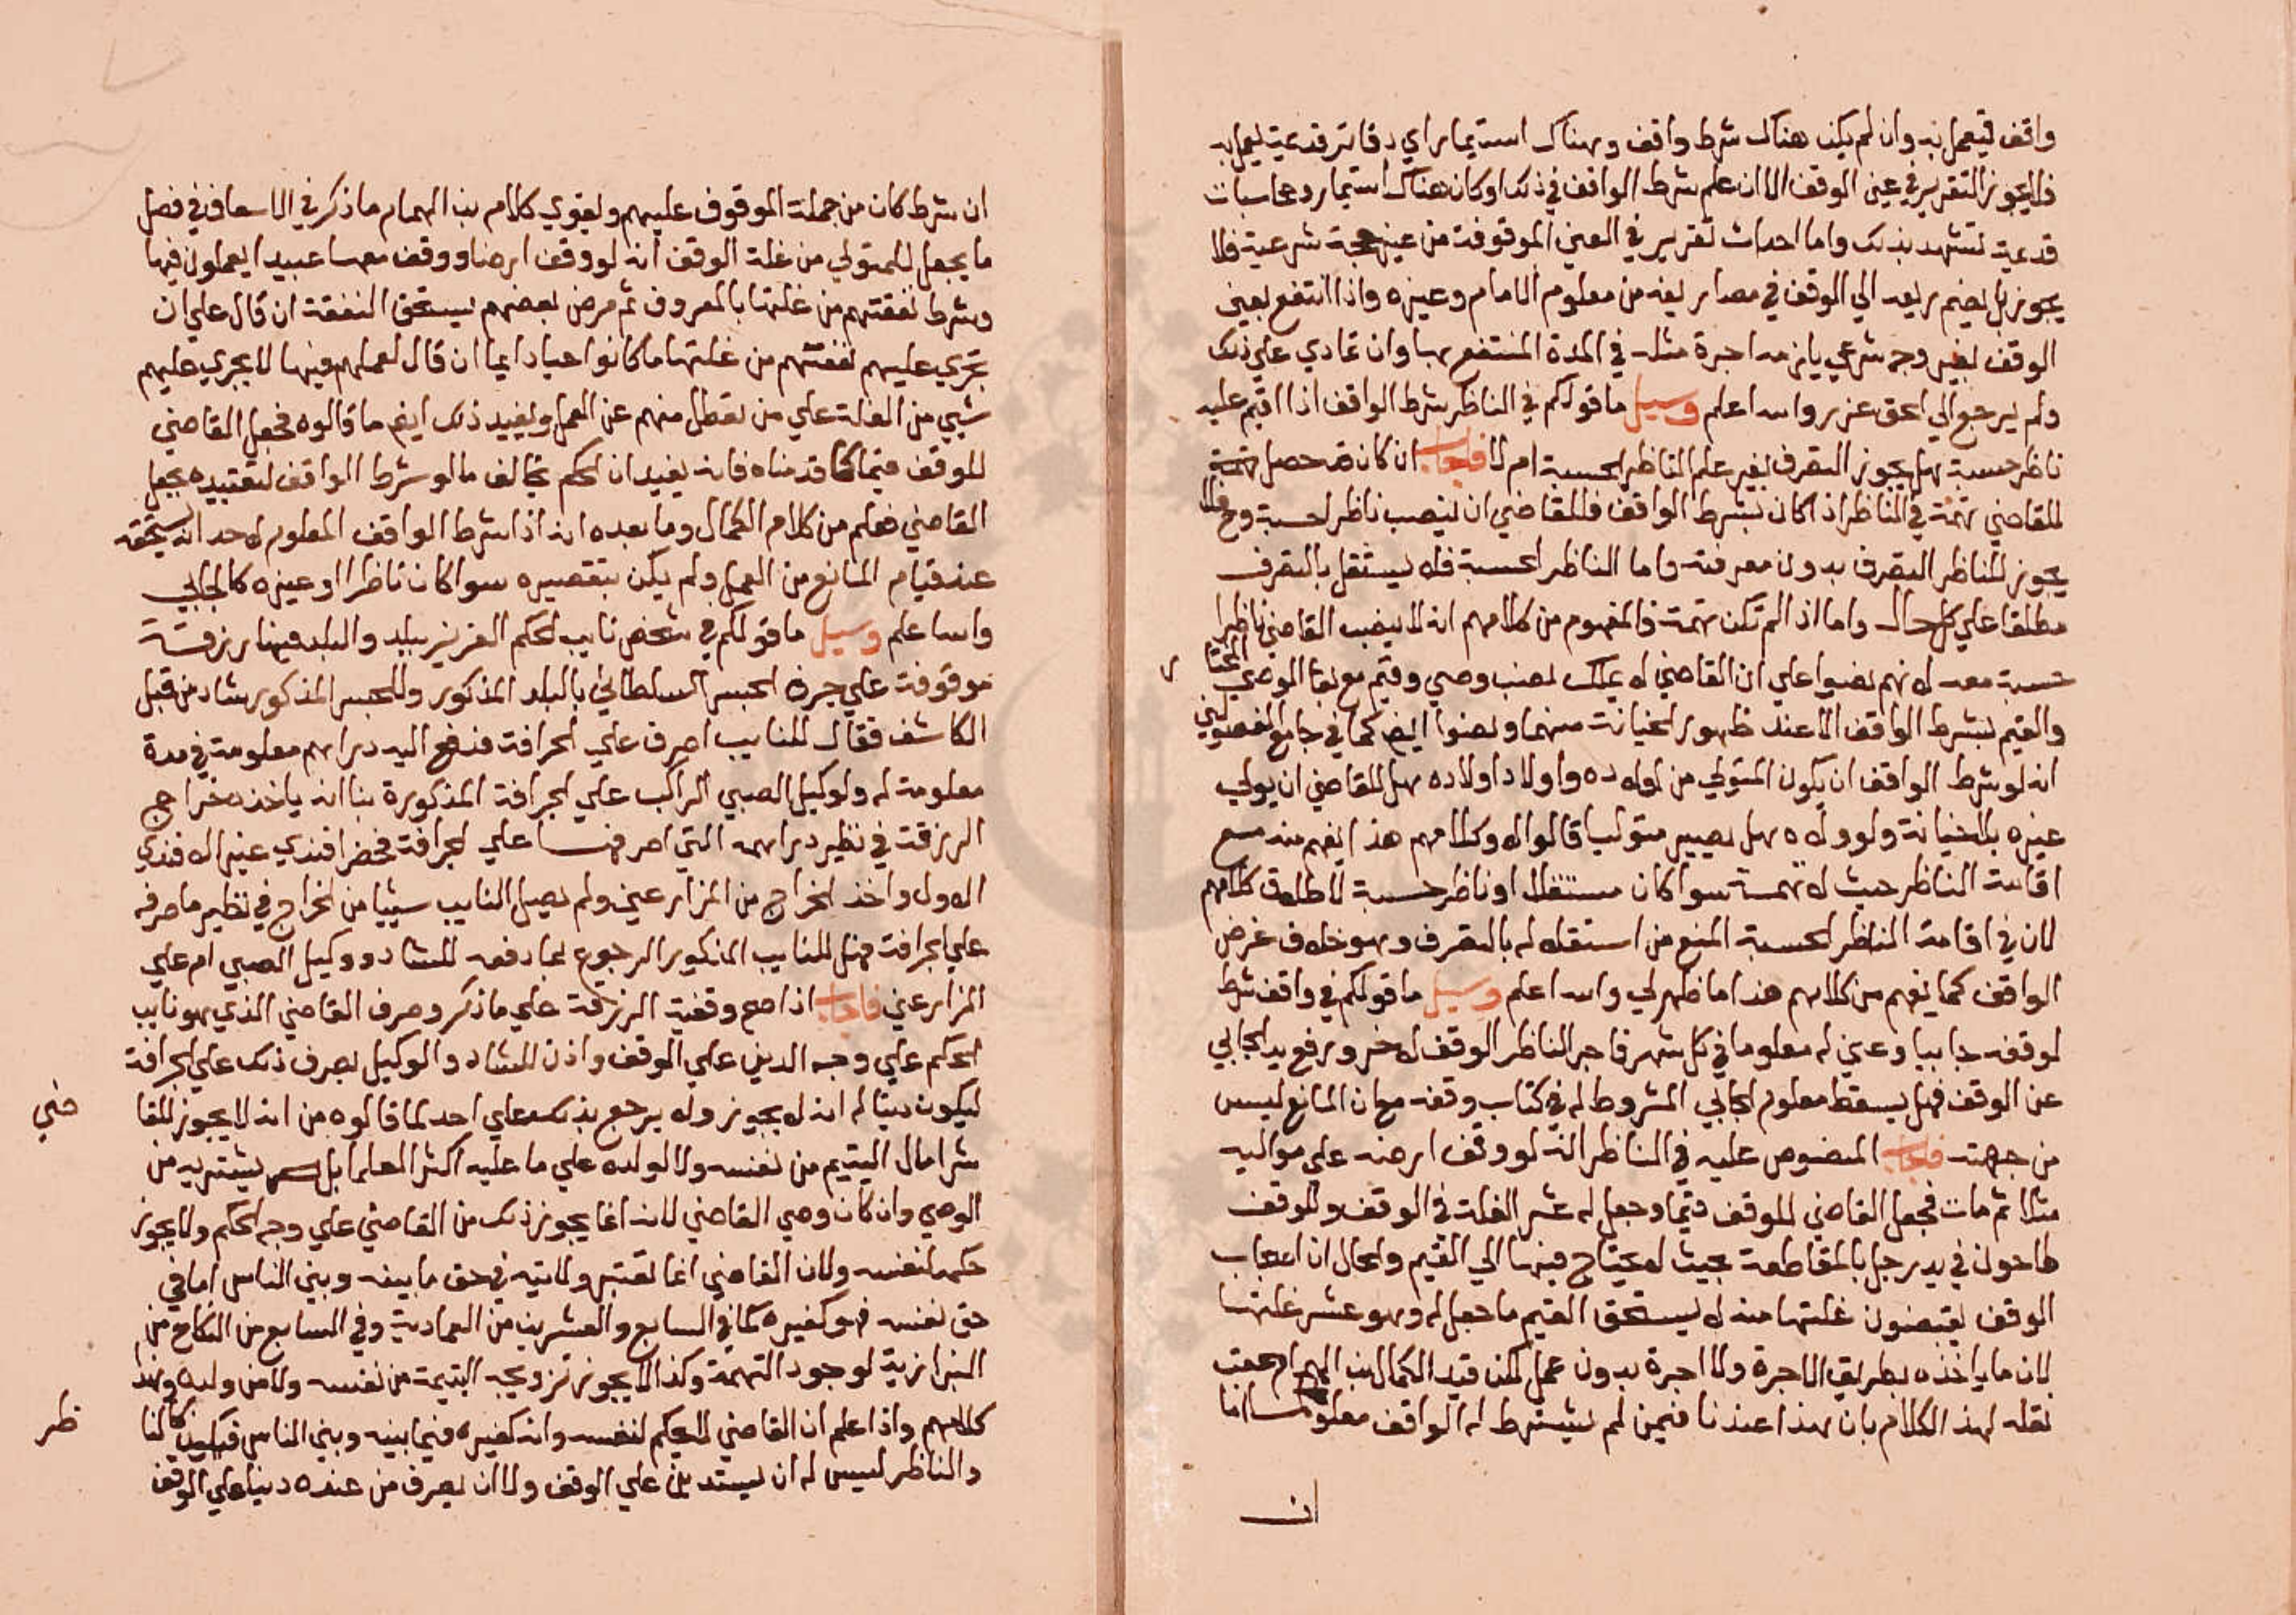 واقف فيعمل به وان لم يكن هناك شرط واقف وهناك استيمار اي دفاتر قديمة يعمل به
فلا يجوز التقرير في عين الوقف الا ان علم شرط الواقف في ذلك او كان هناك استيمار ومحاسبات
قديمة تشهد بذلك واما احداث تقرير في العين الموقوفة من غير حجة شرعية فلا
يجوز بل يضم ريعه الي الوقف في مصاريفه من معلوم الامام وغيره واذا انتفع بعين
الوقف بغير وجه شرعي يلزمه اجرة مثله في المدة المنتفع بها وان تمادي علي ذلك
ولم يرجع الي الحق عزر والله اعلم وسيل ما قولكم في الناظر بشرط الواقف اذا اقيم عليه
ناظر حسبة هل يجوز التصرف بغير علم الناظر الحسبة ام لا فاجاب ان كان قد حصل تهمة
للقاضي تهمة في الناظر اذا كان بشرط الواقف فللقاضي ان ينصب ناظر احسبة وح لا
يجوز للناظر التصرف بدون معرفته واما الناظر الحسبة فلا يستقل بالتصرف
مطلقا علي كل حال واما اذا لم تكن تهمة فالمفهوم من كلامهم انه لا ينصب القاضي ناظرا
حسبة معه لانهم نصوا علي ان القاضي لا يملك نصب وصي وقيم مع بقا الوصي المختار
والقيم بشرط الواقف الا عند ظهور الخيانة منهما ونصوا ايض كما في جامع الفصولين
انه لو شرط الواقف ان يكون المتولي من اولاده واولاد اولاده هل للقاضي ان يولي
غيره بلا خيانة ولو ولاه هل يصير متوليا قالوا لا وكلامهم هذا يفهم منه منع
اقامة الناظر حيث لا تهمة سوا كان مستقلا او ناظر حسبة لاطلاق كلامهم
لان في اقامة الناظر الحسبة المنع من استقلاله بالتصرف وهو خلاف غرض
الواقف كما يفهم من كلامهم هذا ما ظهر لي والله اعلم وسيل ما قولكم في واقف شرط
لوقفه جابيا وعين له معلوما في كل شهر فاجر الناظر الوقف لاخر ورفع يد الجابي
عن الوقف فهل يسقط معلوم الجابي المشروط له في كتاب وقفه مع ان المانع ليس
من جهته فاجاب المنصوص عليه في الناظر انه لو وقف ارضه علي مواليه
مثلا ثم مات فجعل القاضي للوقف قيما وجعل له عشر الغلة في الوقف وللوقف
طاحون في يد رجل بالمقاطعة بحيث لا يحتاج فيها الي القيم والحال ان اصحاب
الوقف يقبضون غلتها منه لا يستحق القيم ما جعل له وهو عشر غلتها
لان ما ياخذه بطريق الاجرة ولا اجرة بدون عمل لكن قيد الكمال بن الهمام عقب
نقله لهذا الكلام بان هذا عندنا فيمن لم يشترط له الواقف معلوما اما
ان
ان شرط كان من جملة الموقوف عليهم ويقوي كلام بن الهمام ما ذكر في الاسعاف في فصل
ما يجعل للمتولي من غلة الوقف انه لو وقف ارضا ووقف معها عبيدا يعملون فيها
وشرط نفقتهم من غلتها بالمعروف ثم مرض بعضهم يستحق النفقة ان قال علي ان
تجري عليهم نفقتهم من غلتها ما كانوا احيا دايما ان قال لعملهم فيها لا يجري عليهم
شيي من الغلة علي من تعطل منهم عن العمل ويفيد ذلك ايض ما قالوه فجعل القاضي
للوقف قيما كما قدمناه فانه يفيد ان الحكم يخالف ما لو شرط الواقف لتقييده بجعل
القاضي فعلم من كلام الكمال وما بعده انه اذا شرط الواقف المعلوم لاحد انه يستحقه
عند قيام المانع من العمل ولم يكن بتقصيره سوا كان ناظرا او غيره كالجابي
والله اعلم وسيل ما قولكم في شخص نايب الحكم العزيز ببلد والبلد فيها رزقة
موقوفة علي جرف الجسر السلطاني بالبلد المذكور وللجسر المذكور شاد من قبل
الكاشف فقال للنايب اصرف علي الجرافة فدفع اليه دراهم معلومة في مدة
معلومة له ولوكيل الصبي الراكب علي الجرافة المذكورة بنا انه ياخذ خراج
الرزقة في نظير دراهمه التي اصرفها علي الجرافة فحضر افندي غير الافندي
الاول واخذ الخراج من المزارعين ولم يصل النايب شييا من الخراج في نظير ما صرفه
علي الجرافة فهل للنايب المذكور الرجوع بما دفعه للشاد ووكيل الصبي ام علي
المزارعين فاجاب اذا صح وقفية الرزقة علي ما ذكر وصرف القاضي الذي هو نايب
الحكم علي وجه الدين علي الوقف واذن للشاد والوكيل بصرف ذلك علي الجرافة
ليكون دينا له انه لا يجوز ولا يرجع بذلك علي احد لما قالوه من انه لا يجوز للقا
ضي
شرا مال اليتيم من نفسه ولا لولده علي ما عليه اكثر العلما بل يشتريه من
الوصي وان كان وصي القاضي لانه انما يجوز ذلك من القاضي علي وجه الحكم ولا يجوز
حكمه لنفسه ولان القاضي انما تعتبر ولايته في حق ما بينه وبين الناس اما في
حق نفسه فهو كغيره كما في السابع والعشرين من العمادية وفي السابع من النكاح من
البزازية لوجود التهمة وكذا لا يجوز تزويجه اليتيمة من نفسه ولا من ولده وهذا
كلامهم واذا علم ان القاضي لا يحكم لنفسه وانه كغيره فيما بينه وبين الناس فيكون كالنا
ظر
والناظر ليس له ان يستدين علي الوقف ولا ان يصرف من عنده دينا علي الوقف